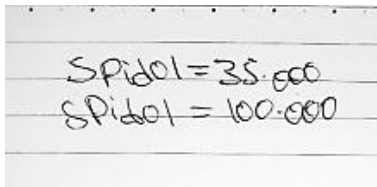 SPidol=35.000
SPidol = 100.000